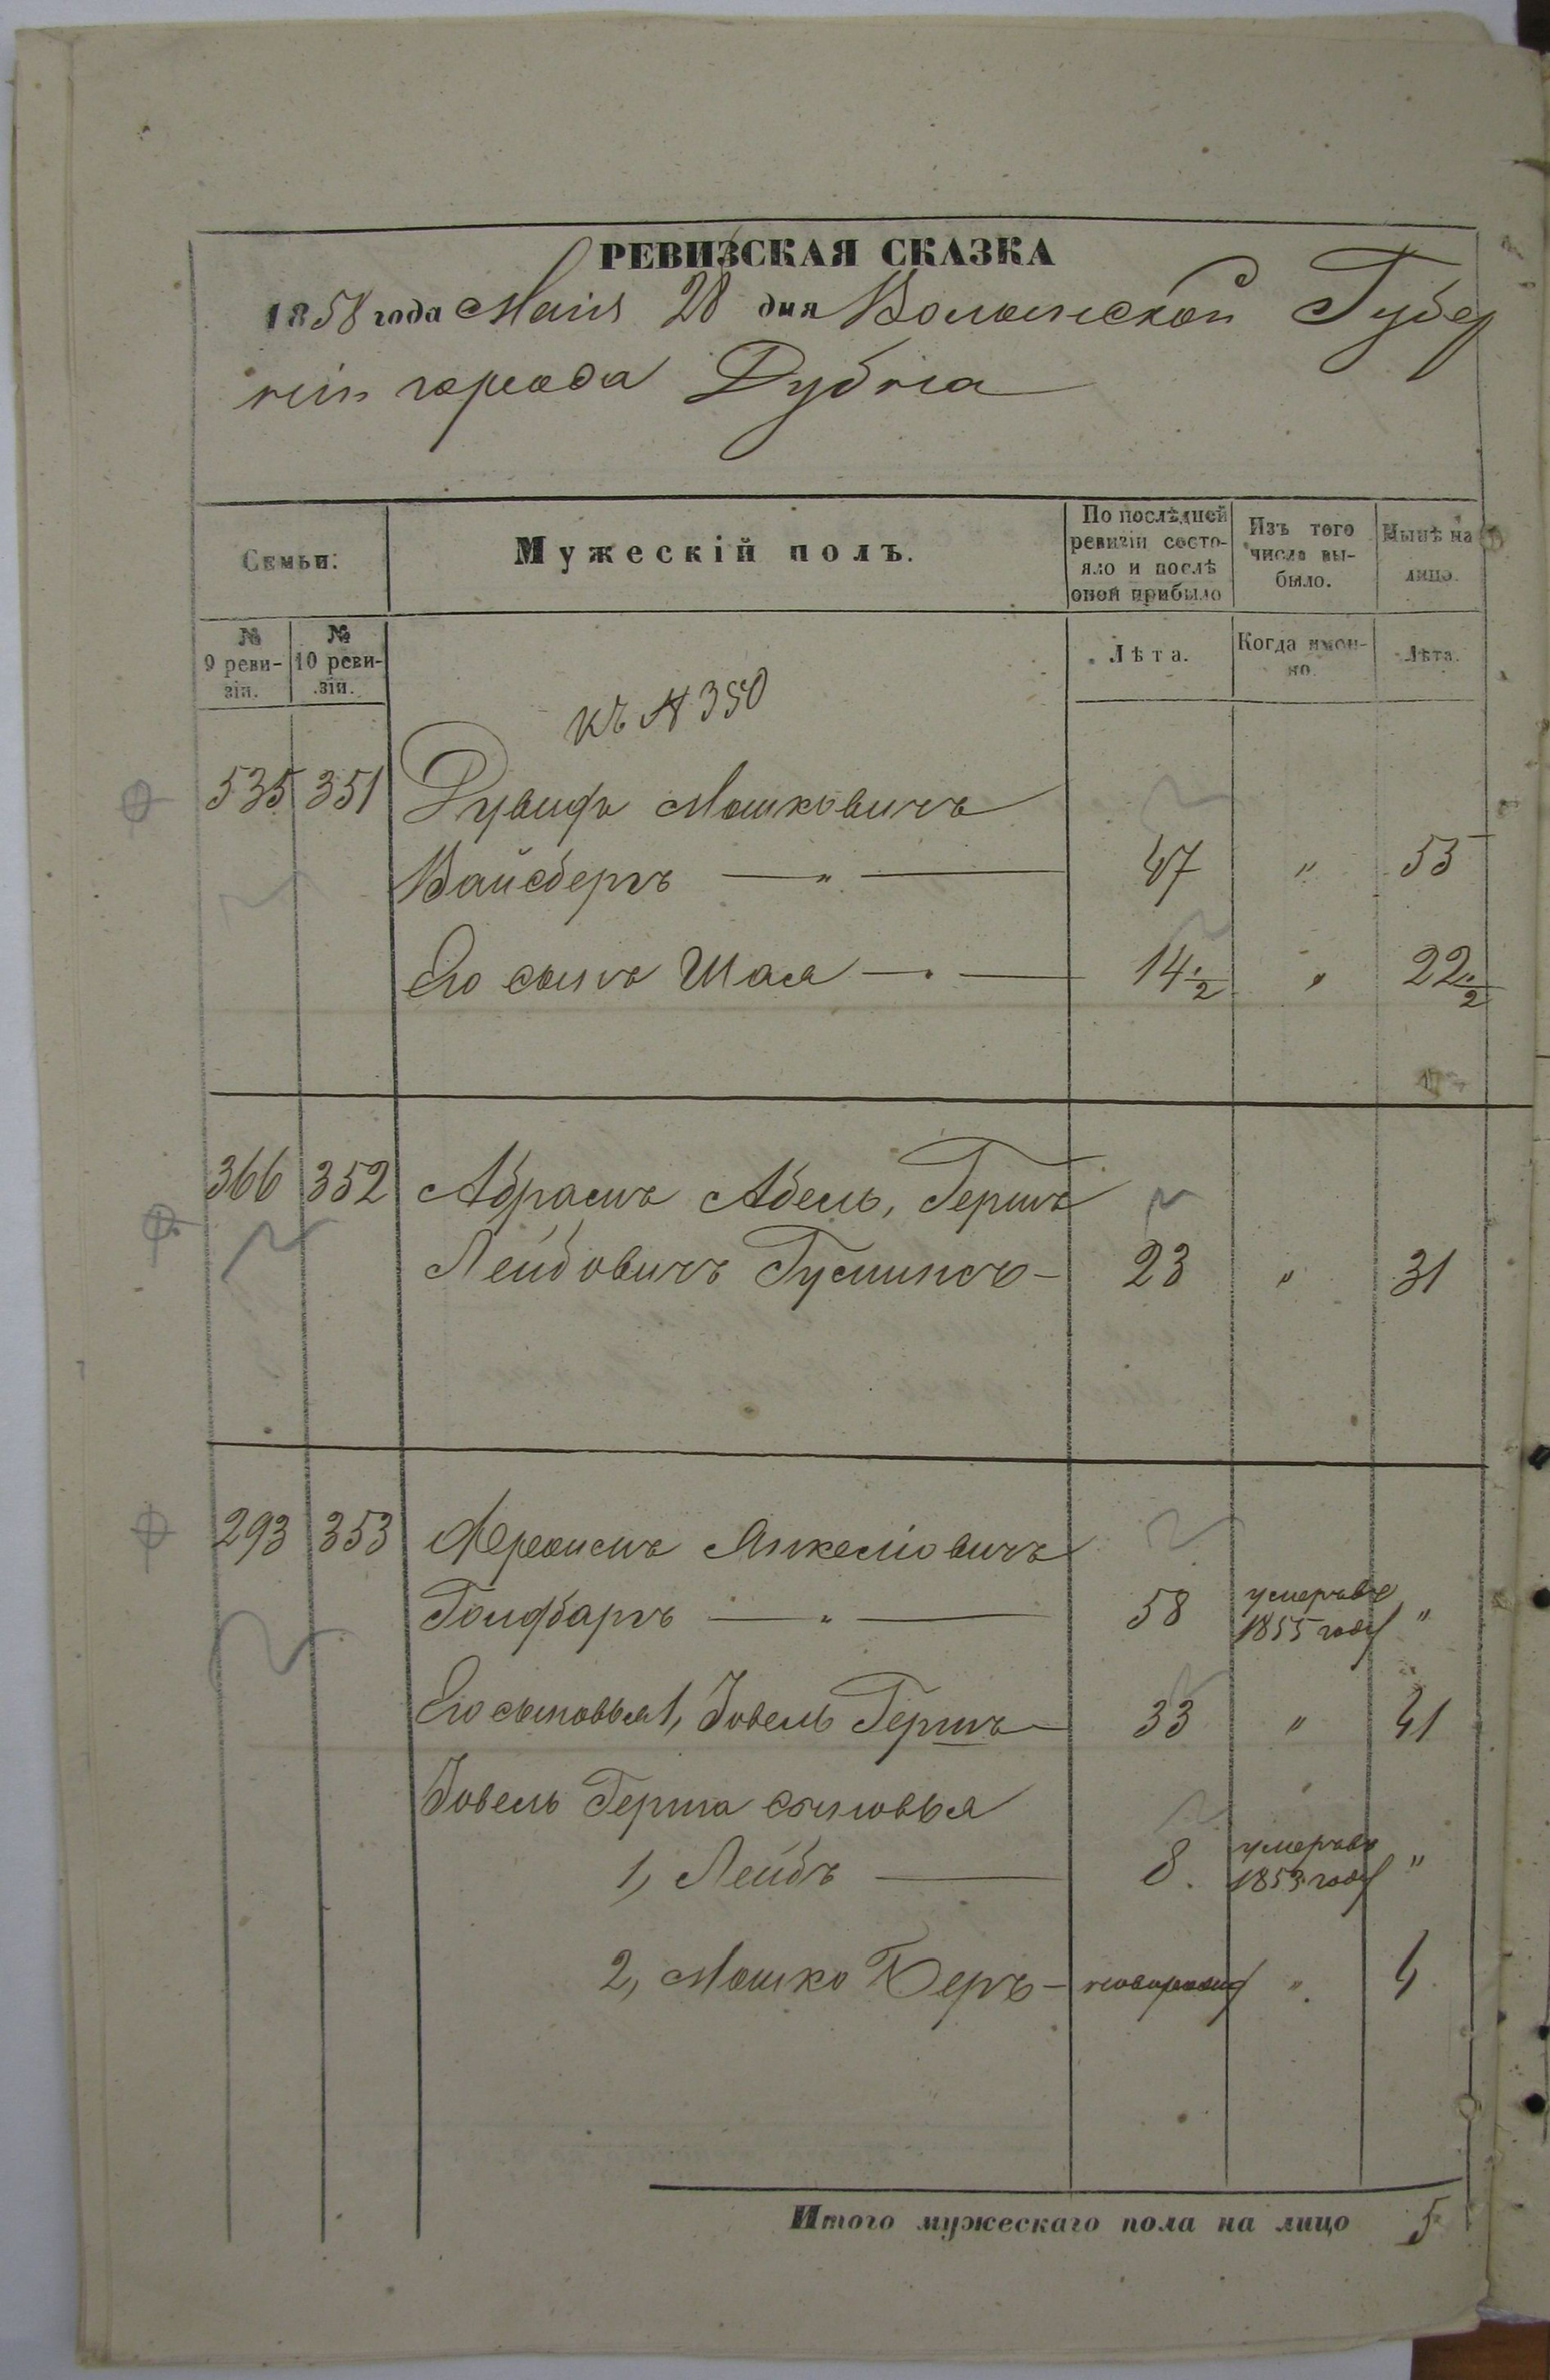 РЕВИЗСКАЯ СКАЗКА
1858 года Маія 28 дня Волынской Губер
ніи города Дубна
Семьи:
Мужескій полъ.
По послѣдней ревизіи состояло и послѣ оной прибыло
Изъ того числа выбыло.
Нынѣ на лицо.
№ 9 ревизіи.
№ 10 ревизіи.
Лѣта.
Когда именно.
Лѣта.
къ № 350
535 351 Рувинъ Мошковичъ
Вайсбергъ — " — 47 " 55
Его сынъ Шая — " — 14 1/2 " 22 1/2
366 352 Абрамъ Абель, Гершъ
Лейбовичъ — 23 " 31
293 353 Янкелiовичъ
58 умеръ въ
1855 году "
Его сыновья 1, Іовель Гершъ — 33 " 41
Іовель Герша сыновья
1, Лейбъ — 8. умеръ въ
1853 году "
2, Мошко Беръ — новорожд ". 4
Итого мужескаго пола на лицо 5